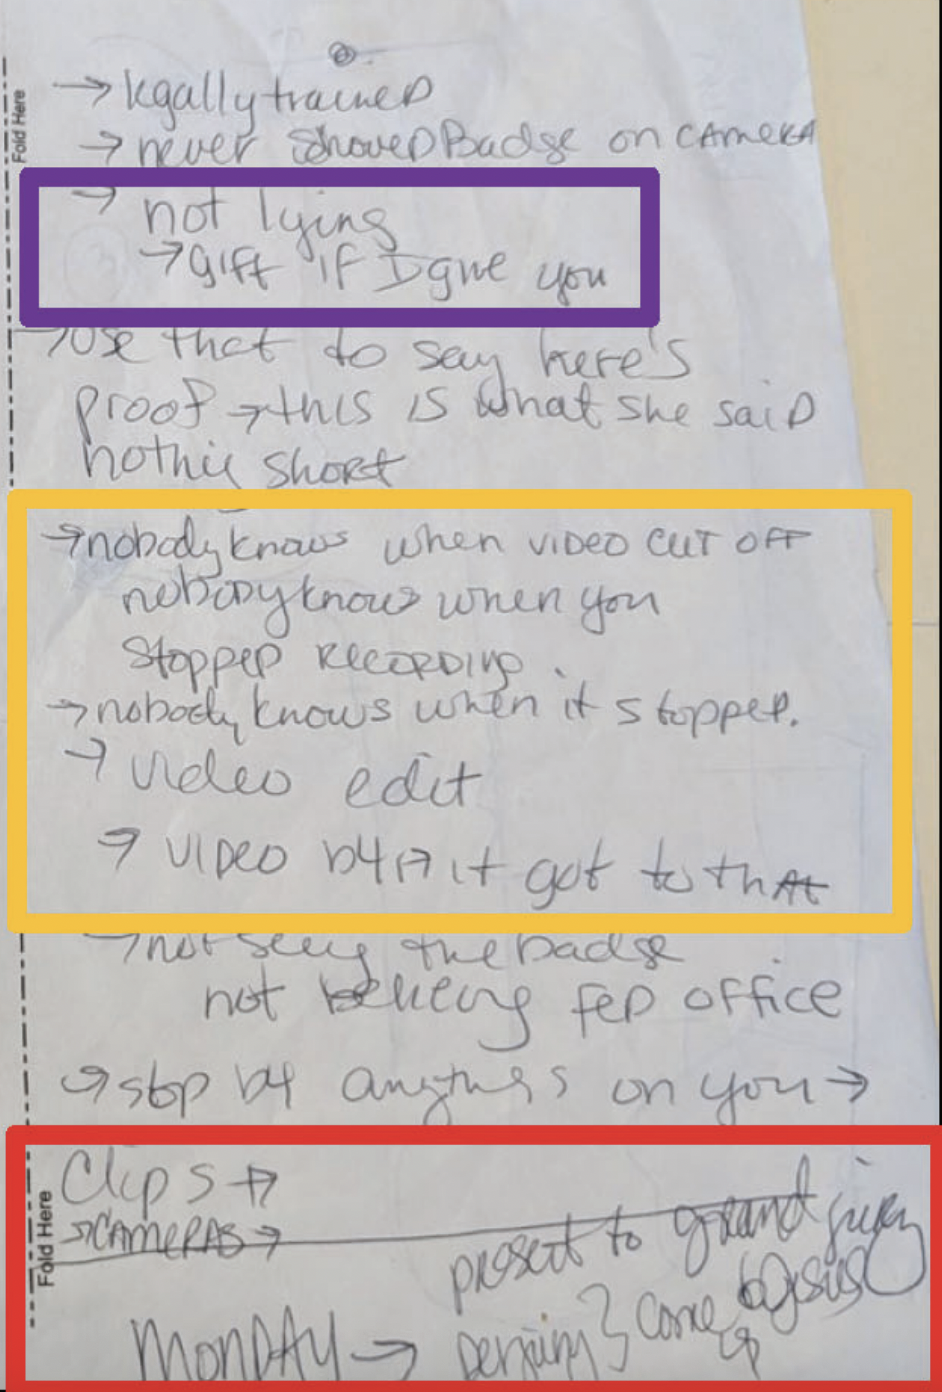 Fold Here
→ legally trained
→ never showed Badge on camera
→ not lying
→ gift if I give you
→ use that to say here's
proof → this is what she said
nothing short
→ nobody knows when video cut off
nobody knows when you
stopped recording.
→ nobody knows when it stopped.
→ video edit
→ video b4 it got to that
→ not seeing the badge
not believing fed office
→ stop b4 on you →
Clips →
→ cameras →
present to grand jury
Fold Here
Monday → come